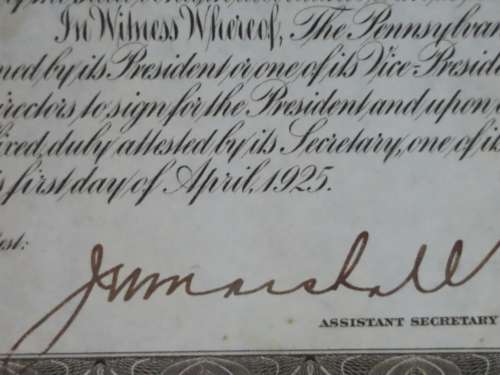 In Witness Whereof, The Pennsylvan
ned by its President or one of its Vice-Preside
irectors to sign for the President and upon
fixed, duly attested by its Secretary, one of it
s first day of April, 1925.
est:
JW Marshall
ASSISTANT SECRETARY